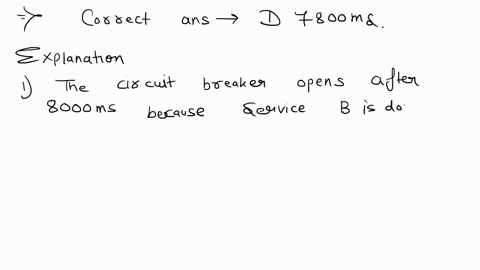 Correct ans → D 7800ms.
Explanation
1) The circuit breaker opens after
8000ms because Service B is do